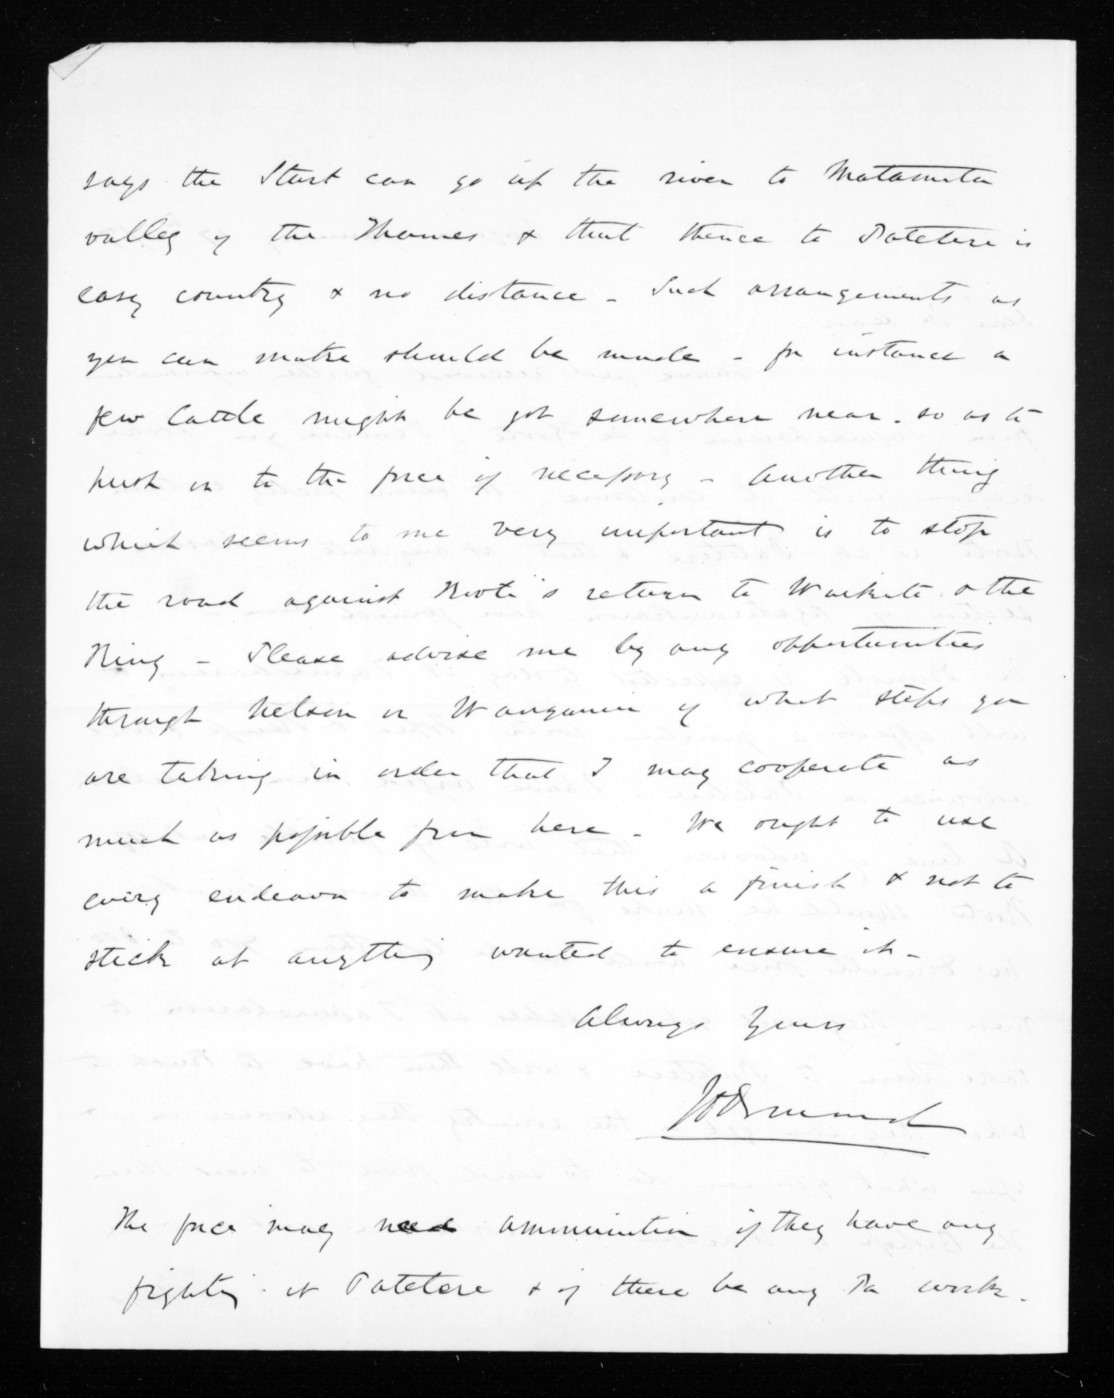 says the Sturt can go up the river to Matamata
valley of the Thames & that thence to Patetere is
easy country & no distance - Such arrangements as
you can make should be made - for instance a
few Cattle might be got somewhere near. so as to
push on to the force if necessary - Another thing
which seems to me very important is to stop
the road against Kooti's return to Waikato & the
King - Please advise me by any opportunities
through Nelson or Wanganui of what steps you
are taking in order that I may cooperate as
much as possible from here - We ought to use
every endeavor to make this a finish & not to
stick at anything wanted to ensure it -
Always Yours
JDOrmond
The force may need ammunition if they have any
fighting at Patetere & if there be any Pa work.